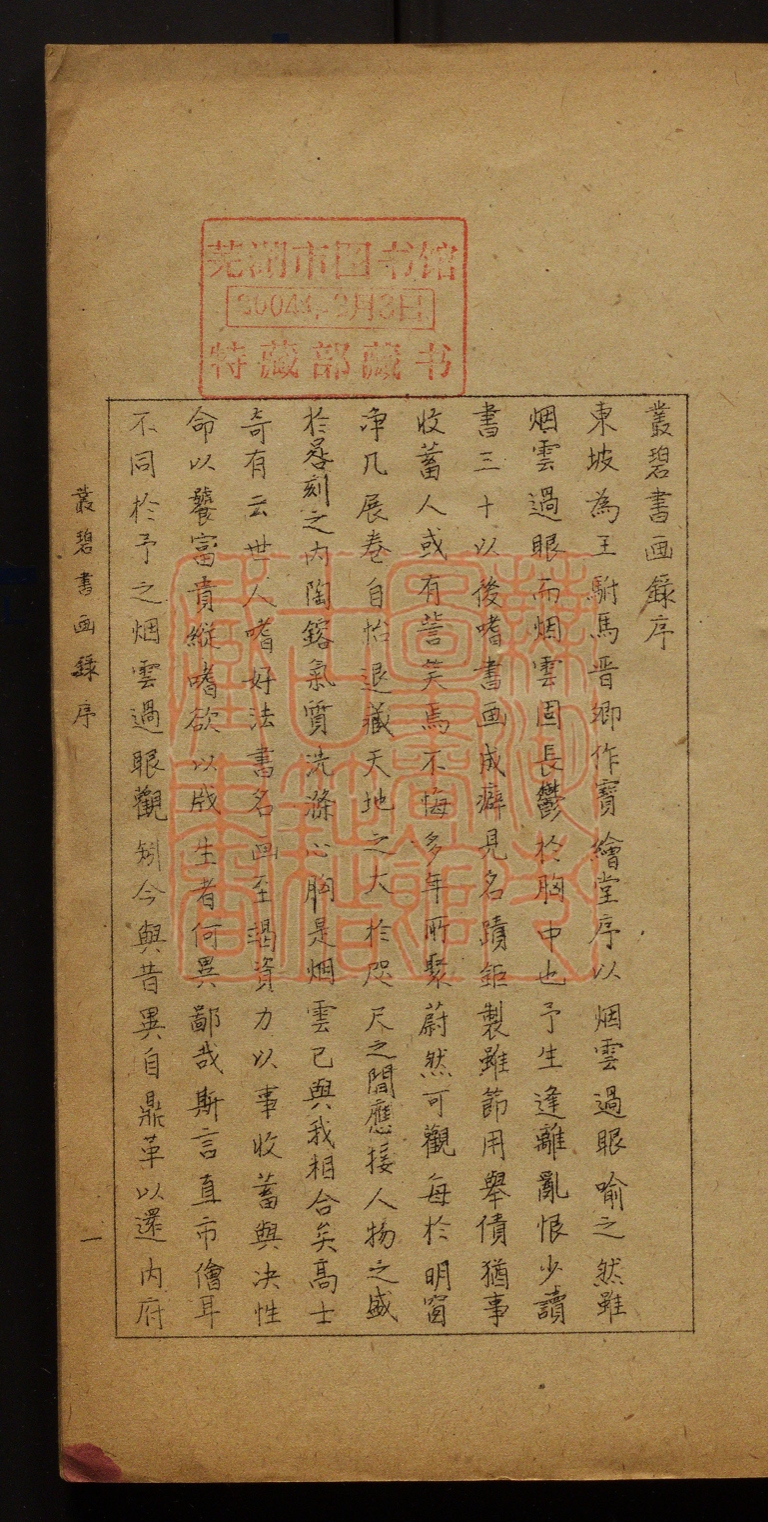 叢碧書画錄序
東坡為王駙馬晋卿作寶繪堂序以烟雲過眼喻之然雖
烟雲過眼而烟雲固長鬱於胸中也予生逢離亂恨少讀
書三十以後嗜書画成癖見名蹟鉅製雖節用舉債猶事
收蓄人或有訾笑焉不悔多年所聚蔚然可觀每於明窗
净几展卷自怡退藏天地之大於咫尺之間應接人物之盛
於晷刻之內陶鎔氣質洗滌心胸是烟雲已與我相合矣高士
奇有云世人嗜好法書名画至竭資力以事收蓄與决性
命以饕富貴縱嗜欲以戕生者何異鄙哉斯言直市儈耳
不同於予之烟雲過眼觀矧今與昔異自鼎革以還內府
叢碧書画錄序
一
芜湖市图书馆
特藏部藏书